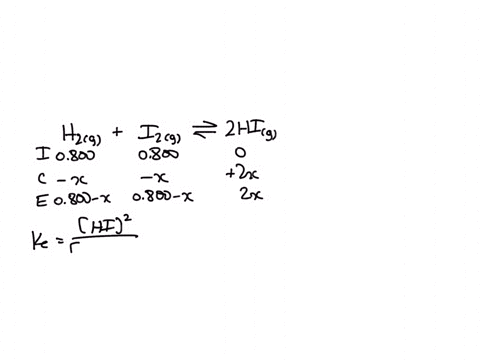 H₂(g) + I₂(g) ⇌ 2HI(g)
I 0.800 0.800 0
C -x -x +2x
E 0.800-x 0.800-x 2x
Kc = [HI]² / [